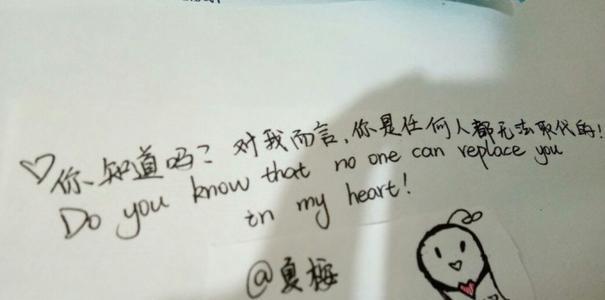 ♡你、知道吗？对我而言，你是任何人都无法取代的！
Do you know that no one can replace you
in my heart!
@夏梅